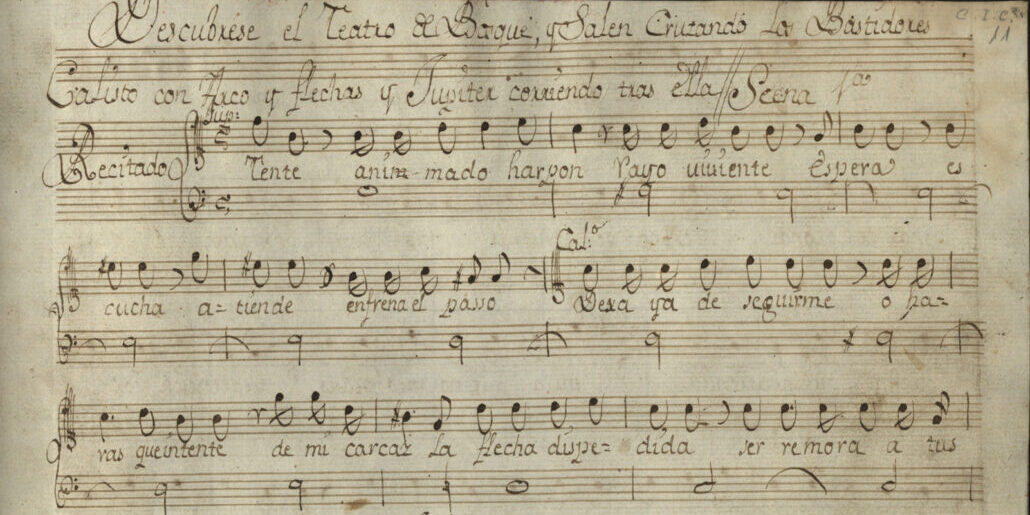 Descubrese el Teatro de Bosque, y Salen Cruzando los Bastidores
11
Calisto con Arco y flechas y Jupiter corriendo tras ella // Scena 1ª
Jup:
Recitado Tente ani- mado harpon rayo viviente Espera es
Cal.º
cucha a= tiende enfrena el passo Dexa ya de seguirme o pa=
ras que intente de mi carcaz la flecha dispe= dida ser remora a tus